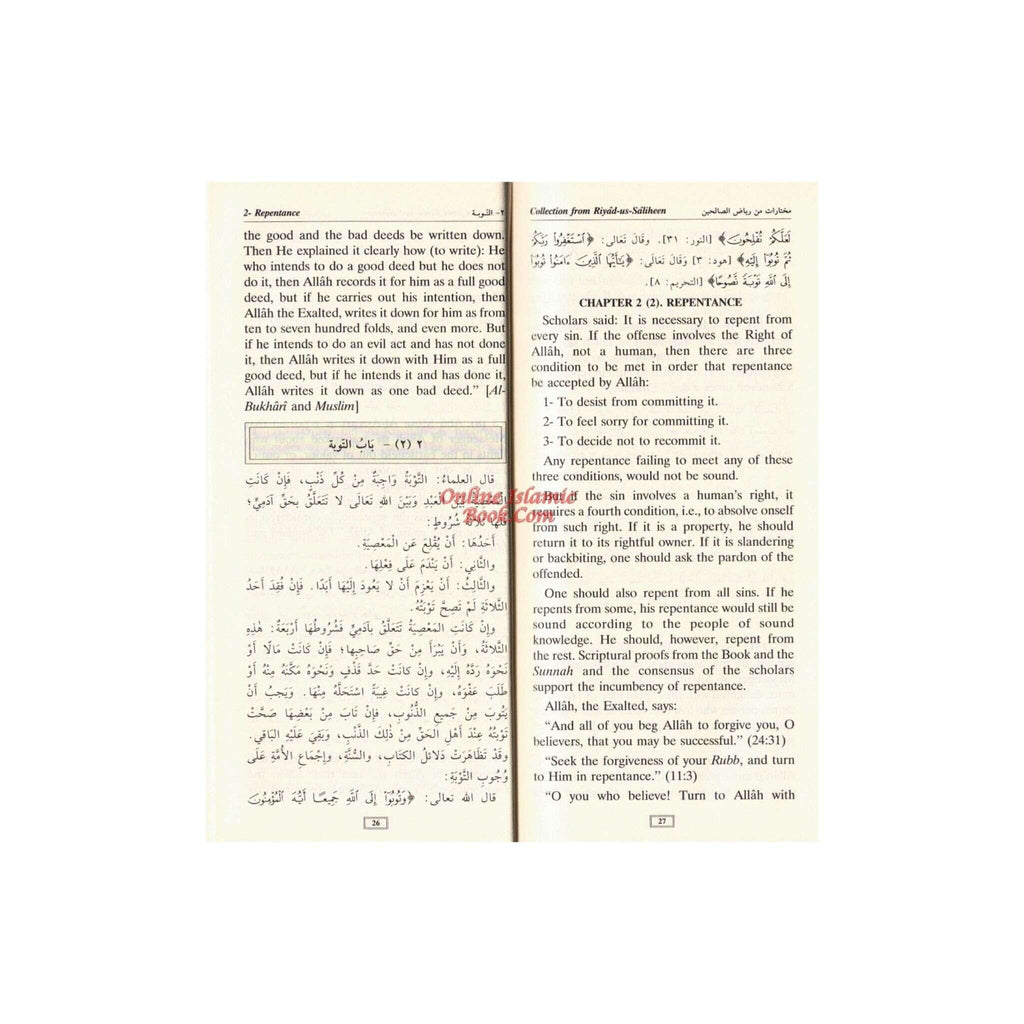 2- Repentance ٢- التوبة
the good and the bad deeds be written down.
Then He explained it clearly how (to write): He
who intends to do a good deed but he does not
do it, then Allâh records it for him as a full good
deed, but if he carries out his intention, then
Allâh the Exalted, writes it down for him as from
ten to seven hundred folds, and even more. But
if he intends to do an evil act and has not done
it, then Allâh writes it down with Him as a full
good deed, but if he intends it and has done it,
Allâh writes it down as one bad deed.” [Al-
Bukhârî and Muslim]
٢ (٢) - بَابُ التوبة
قال العلماءُ: التَّوْبَةُ وَاجِبَةٌ مِنْ كُلِّ ذَنْبٍ، فَإِنْ كَانَتِ
المَعْصِيَةُ بَيْنَ العَبْدِ وَبَيْنَ اللهِ تَعَالَى لا تَتَعَلَّقُ بِحَقِّ آدَمِيٍّ؛
فَلَهَا ثَلاثَةُ شُرُوطٍ:
أَحَدُهَا: أَنْ يُقْلِعَ عَنِ الْمَعْصِيَةِ.
والثَّانِي: أَنْ يَنْدَمَ عَلَى فِعْلِهَا.
والثَّالِثُ: أَنْ يَعْزِمَ أَنْ لا يَعُودَ إِلَيْهَا أَبَدًا. فَإِنْ فُقِدَ أَحَدُ
الثَّلاثَةِ لَمْ تَصِحَّ تَوْبَتُهُ.
وإنْ كَانَتِ المَعْصِيَةُ تَتَعَلَّقُ بِآدَمِيٍّ فَشُرُوطُهَا أَرْبَعَةٌ: هٰذِهِ
الثَّلاثَةُ، وَأَنْ يَبْرَأَ مِنْ حَقِّ صَاحِبِها؛ فَإِنْ كَانَتْ مَالًا أَوْ
نَحْوَهُ رَدَّهُ إِلَيْهِ، وإِنْ كَانَتْ حَدَّ قَذْفٍ وَنَحْوَهُ مَكَّنَهُ مِنْهُ أَوْ
طَلَبَ عَفْوَهُ، وإِنْ كَانَتْ غِيبَةً اسْتَحَلَّهُ مِنْهَا. وَيَجِبُ أَنْ
يَتُوبَ مِنْ جَمِيعِ الذُّنُوبِ، فَإِنْ تَابَ مِنْ بَعْضِهَا صَحَّتْ
تَوْبَتُهُ عِنْدَ أَهْلِ الحَقِّ مِنْ ذٰلِكَ الذَّنْبِ، وَبَقِيَ عَلَيْهِ الباقِي.
وقَدْ تَظَاهَرَتْ دَلائلُ الكتَابِ، والسُّنَّةِ، وإجْمَاعِ الأُمَّةِ عَلَى
وُجُوبِ التَّوْبَةِ:
قال الله تعالى: ﴿وَتُوبُوٓا۟ إِلَى ٱللَّهِ جَمِيعًا أَيُّهَ ٱلْمُؤْمِنُونَ
26
Collection from Riyâd-us-Sâliheen مختارات من رياض الصالحين
لَعَلَّكُمْ تُفْلِحُونَ﴾ [النور: ٣١]. وقَالَ تَعَالى: ﴿ٱسْتَغْفِرُوا۟ رَبَّكُمْ
ثُمَّ تُوبُوٓا۟ إِلَيْهِ﴾ [هود: ٣] وَقَالَ تَعَالى: ﴿يَـٰٓأَيُّهَا ٱلَّذِينَ ءَامَنُوا۟ تُوبُوٓا۟
إِلَى ٱللَّهِ تَوْبَةً نَّصُوحًا﴾ [التحريم: ٨].
CHAPTER 2 (2). REPENTANCE
Scholars said: It is necessary to repent from
every sin. If the offense involves the Right of
Allâh, not a human, then there are three
condition to be met in order that repentance
be accepted by Allâh:
1- To desist from committing it.
2- To feel sorry for committing it.
3- To decide not to recommit it.
Any repentance failing to meet any of these
three conditions, would not be sound.
But if the sin involves a human's right, it
requires a fourth condition, i.e., to absolve onself
from such right. If it is a property, he should
return it to its rightful owner. If it is slandering
or backbiting, one should ask the pardon of the
offended.
One should also repent from all sins. If he
repents from some, his repentance would still be
sound according to the people of sound
knowledge. He should, however, repent from
the rest. Scriptural proofs from the Book and the
Sunnah and the consensus of the scholars
support the incumbency of repentance.
Allâh, the Exalted, says:
“And all of you beg Allâh to forgive you, O
believers, that you may be successful.” (24:31)
“Seek the forgiveness of your Rubb, and turn
to Him in repentance.” (11:3)
“O you who believe! Turn to Allâh with
27
Online Islamic
Book.Com